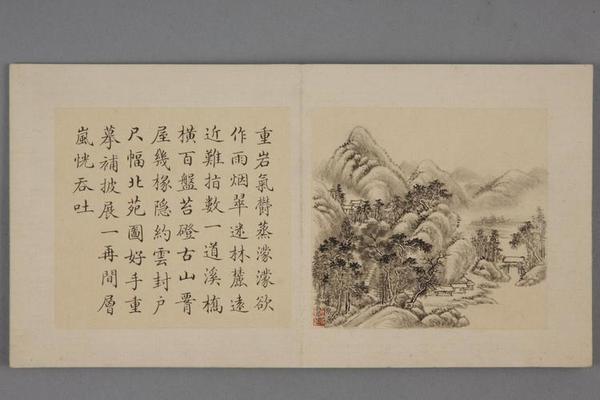 重岩氣欝蒸濛濛欲
作雨烟翠迷林麓遠
近難指數一道溪橋
橫百盤苔磴古山
屋幾椽隱約雲封户
尺幅北苑圖好手重
摹補披展一再間層
嵐恍吞吐